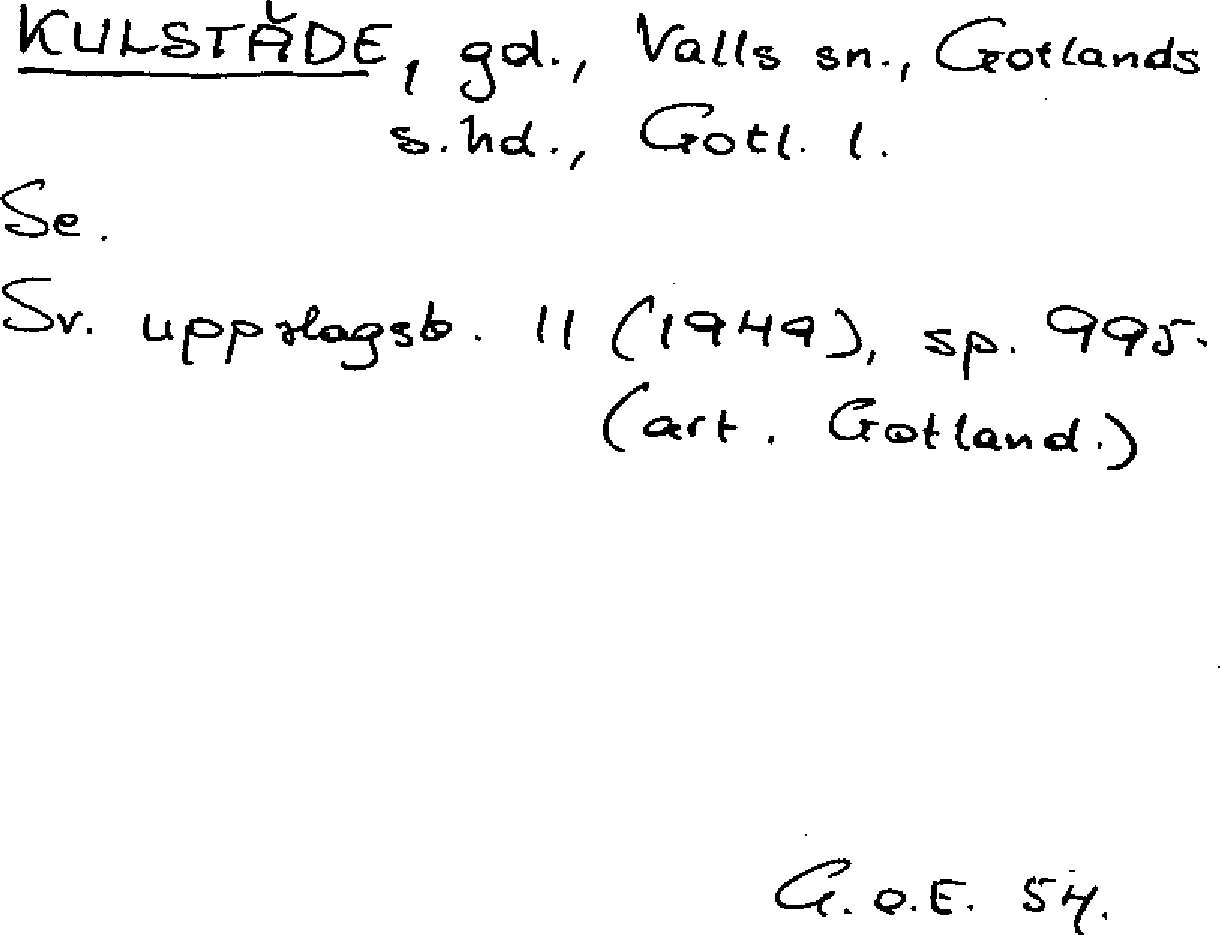 KULSTÄDE, gd., Valls sn., Gotlands
s.hd., Gotl. l.
Se.
Sv. uppslagsb. 11 (1949), sp. 995.
(art. Gotland.)
G.o.E. 54.